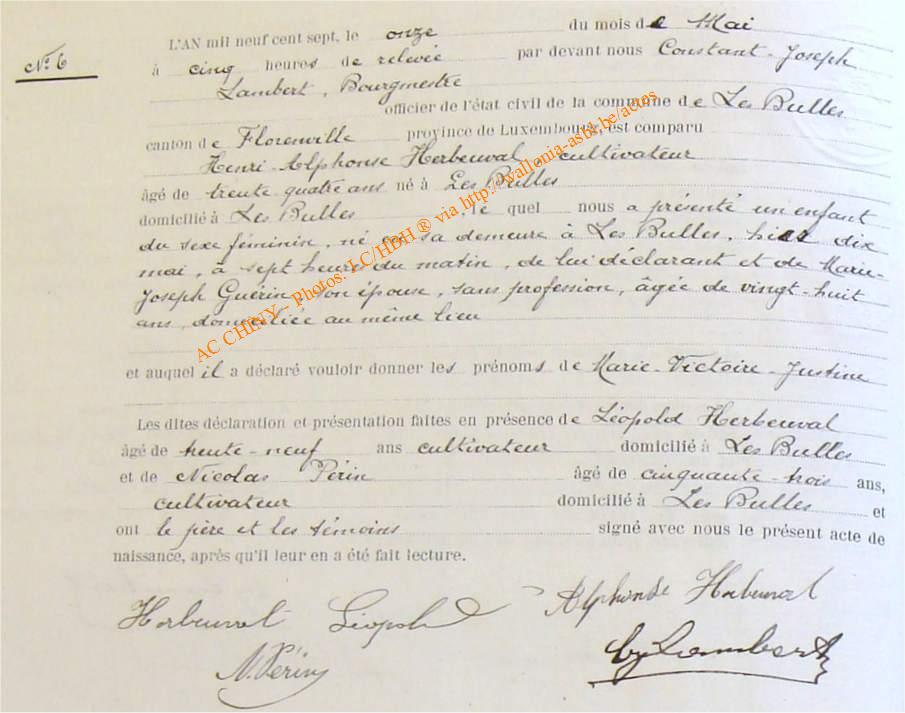 N.º 6
L'AN mil neuf cent sept, le onze du mois de Mai
à cinq heures de relevée par devant nous Constant-Joseph
Lambert, Bourgmestre
officier de l'état civil de la commune de Les Bulles
canton de Florenville province de Luxembourg, est comparu
Henri-Alphonse Herbeuval, cultivateur
âgé de trente quatre ans né à Les Bulles
domicilié à Les Bulles, le quel nous a présenté un enfant
du sexe féminin, né en sa demeure à Les Bulles, hier dix
mai, à sept heures du matin, de lui déclarant et de Marie-
Joseph Guérin, son épouse, sans profession, âgée de vingt-huit
ans, domiciliée au même lieu
et auquel il a déclaré vouloir donner les prénoms de Marie-Victoire-Justine
Les dites déclaration et présentation faites en présence de Léopold Herbeuval
âgé de trente-neuf ans cultivateur domicilié à Les Bulles
et de Nicolas Périn âgé de cinquante-trois ans,
cultivateur domicilié à Les Bulles et
ont le père et les témoins signé avec nous le présent acte de
naissance, après qu'il leur en a été fait lecture.
Herbeuval Léopold Alphonse Herbeuval
N. Périn Lambert
AC CHINY - Photos: LC/HBH ® via http://wallonia-asbl.be/actes